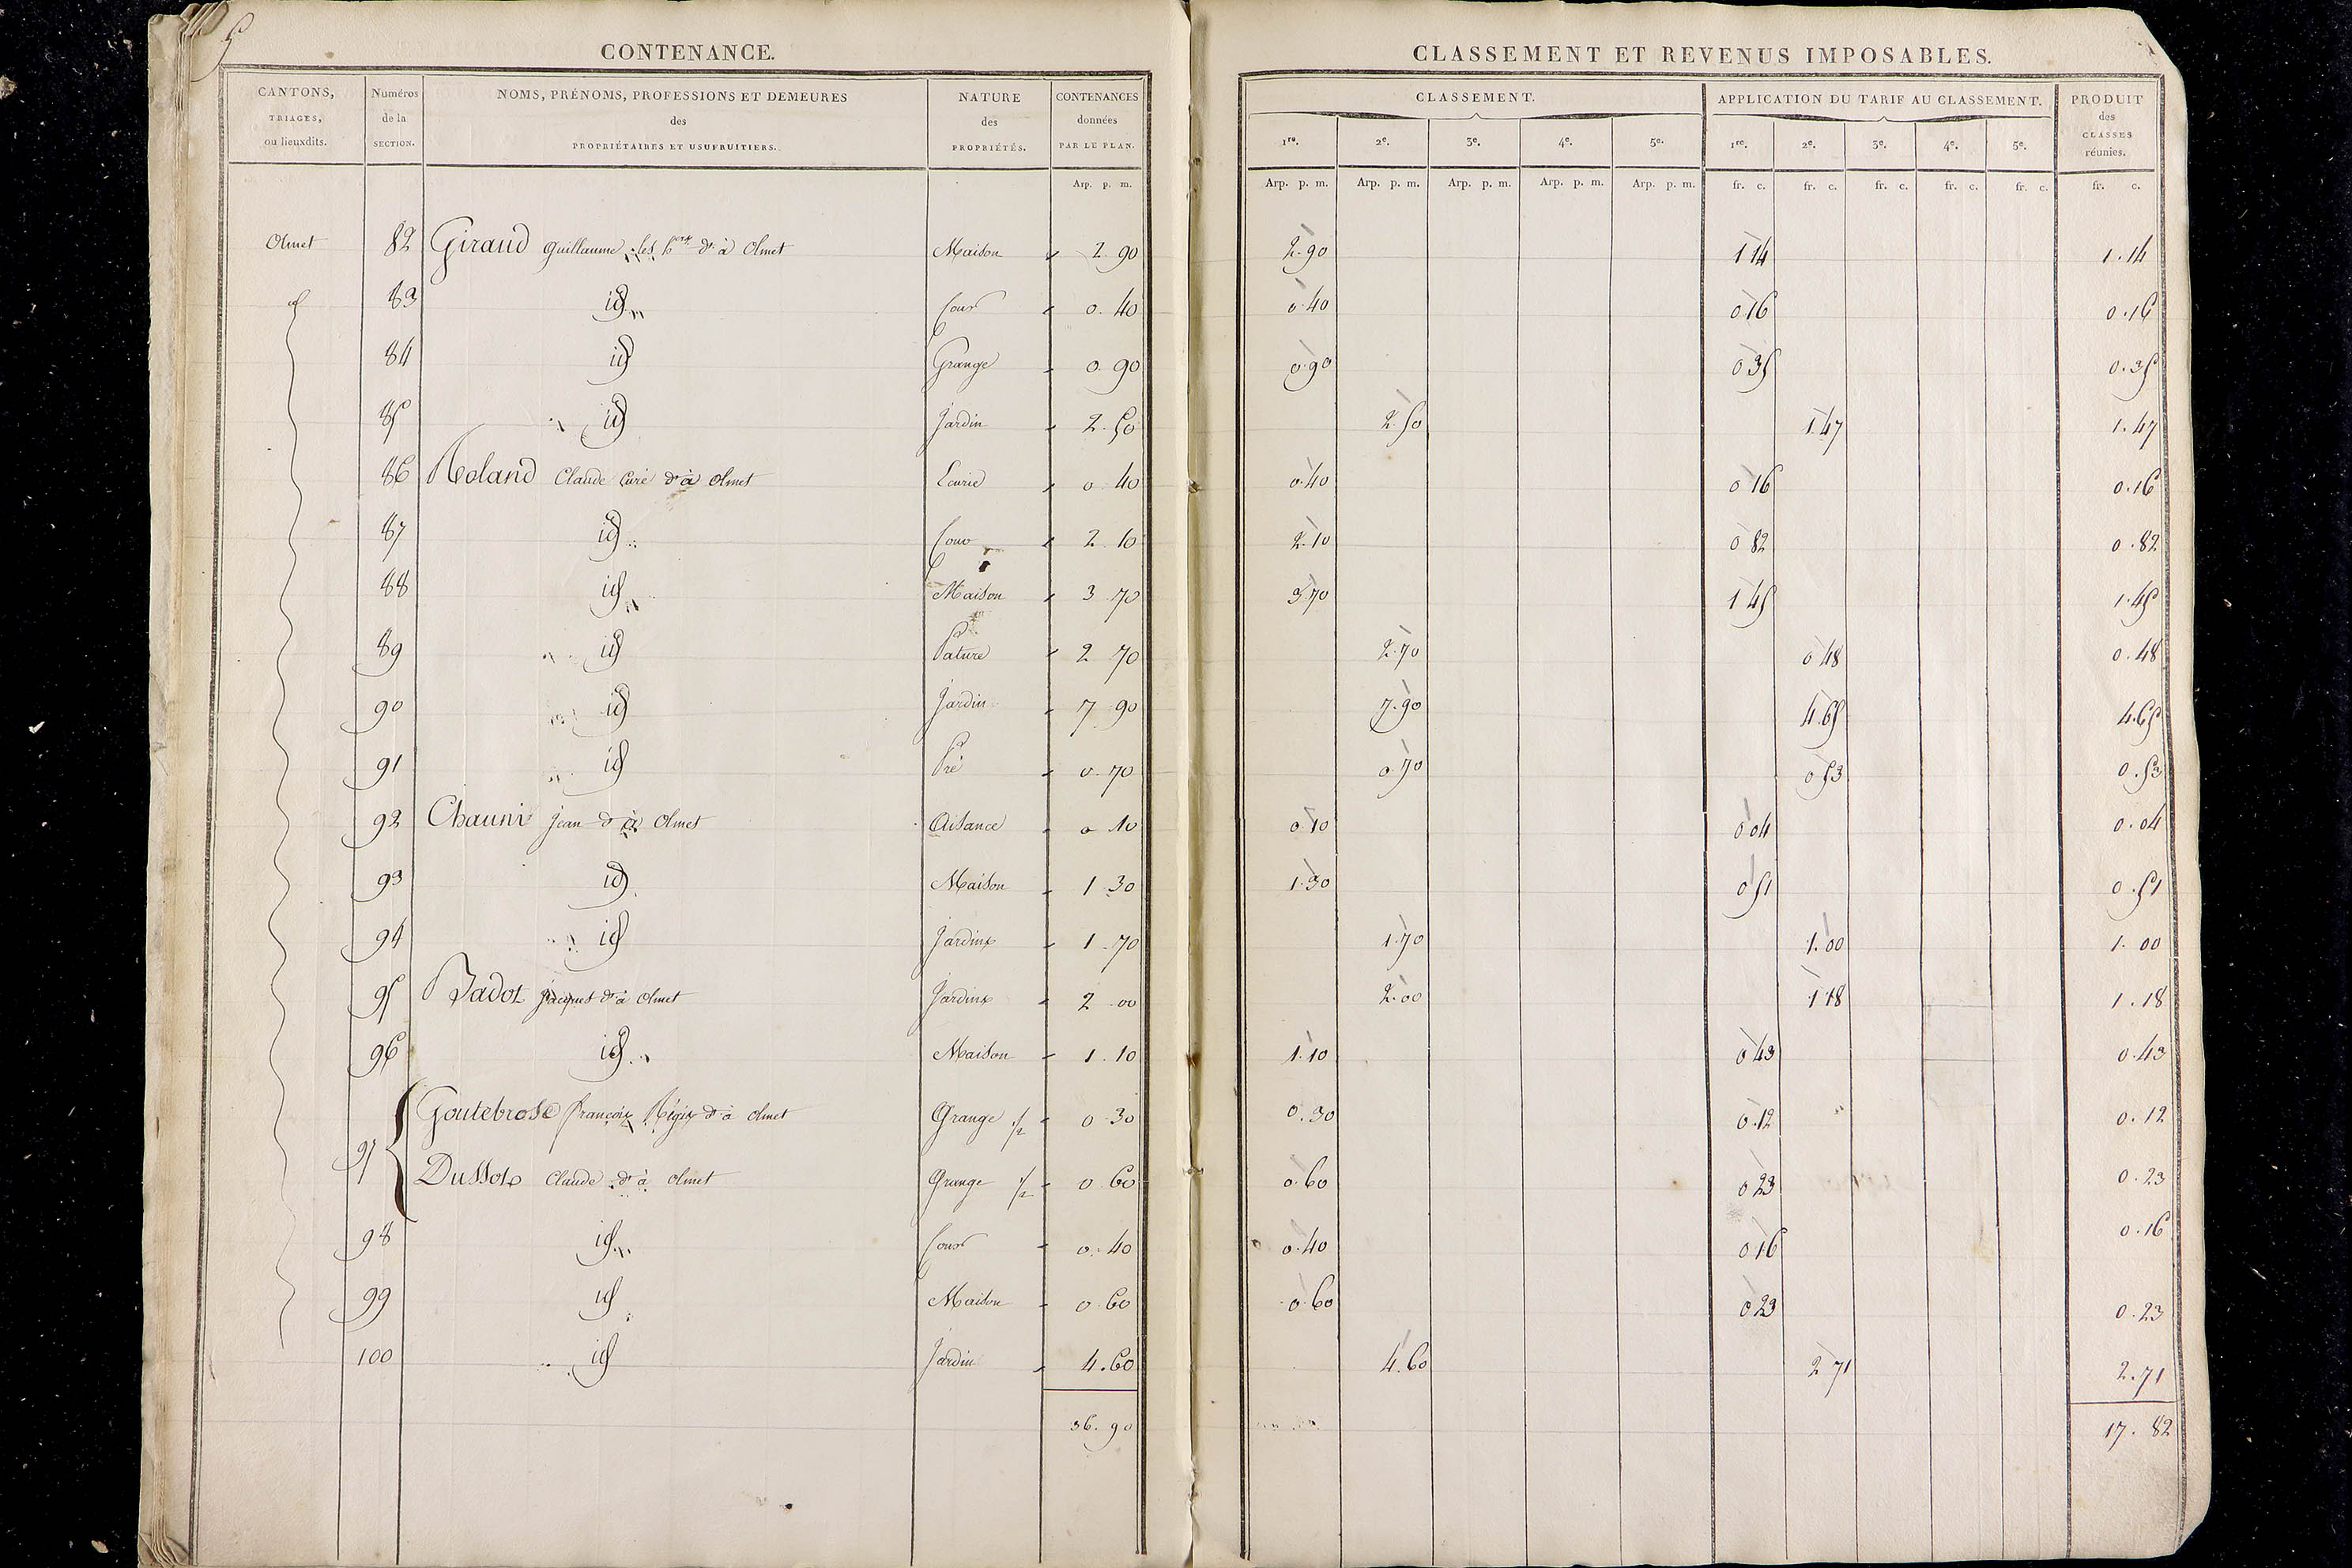 5
CONTENANCE.
CLASSEMENT ET REVENUS IMPOSABLES.
CANTONS, TRIAGES, ou lieuxdits.
Numéros de la SECTION.
NOMS, PRÉNOMS, PROFESSIONS ET DEMEURES des PROPRIÉTAIRES ET USUFRUITIERS.
NATURE des PROPRIÉTÉS.
CONTENANCES données PAR LE PLAN.
CLASSEMENT.
APPLICATION DU TARIF AU CLASSEMENT.
PRODUIT des CLASSES réunies.
1re. 2e. 3e. 4e. 5e. 1re. 2e. 3e. 4e. 5e.
Arp. p. m. Arp. p. m. Arp. p. m. Arp. p. m. Arp. p. m. Arp. p. m. fr. c. fr. c. fr. c. fr. c. fr. c. fr. c.
Olmet 82 Giraud Guillaume les hers dt à Olmet Maison 2.90 2.90 1 14 1.14
id 83 id Cour 0.40 0.40 0 16 0.16
84 id Grange 0.90 0.90 0 35 0.35
85 id Jardin 2.50 2.50 1.47 1.47
86 Roland Claude Curé dt à Olmet Ecurie 0.40 0.40 0 16 0.16
87 id Cour 2.10 2.10 0 82 0.82
88 id Maison 3.70 3.70 1 45 1.45
89 id Pature 2.70 2.70 0 48 0.48
90 id Jardin 7.90 7.90 4.65 4.65
91 id Pré 0.70 0.70 0 53 0.53
92 Chauni Jean dt à Olmet Aisance 0.10 0.10 0 04 0.04
93 id Maison 1.30 1.30 0 51 0.51
94 id Jardinx 1.70 1.70 1.00 1.00
95 Badot Jacques dt à Olmet Jardinx 2.00 2.00 1 18 1.18
96 id Maison 1.10 1.10 0 43 0.43
97 Goutebrose françoix Régix dt à Olmet Grange 1/2 0.30 0.30 0.12 0.12
Dussot Claude dt à Olmet Grange 1/2 0.60 0.60 0 23 0.23
98 id Cour 0.40 0.40 0 16 0.16
99 id Maison 0.60 0.60 0 23 0.23
100 id Jardin 4.60 4.60 2 71 2.71
36.90 17.82